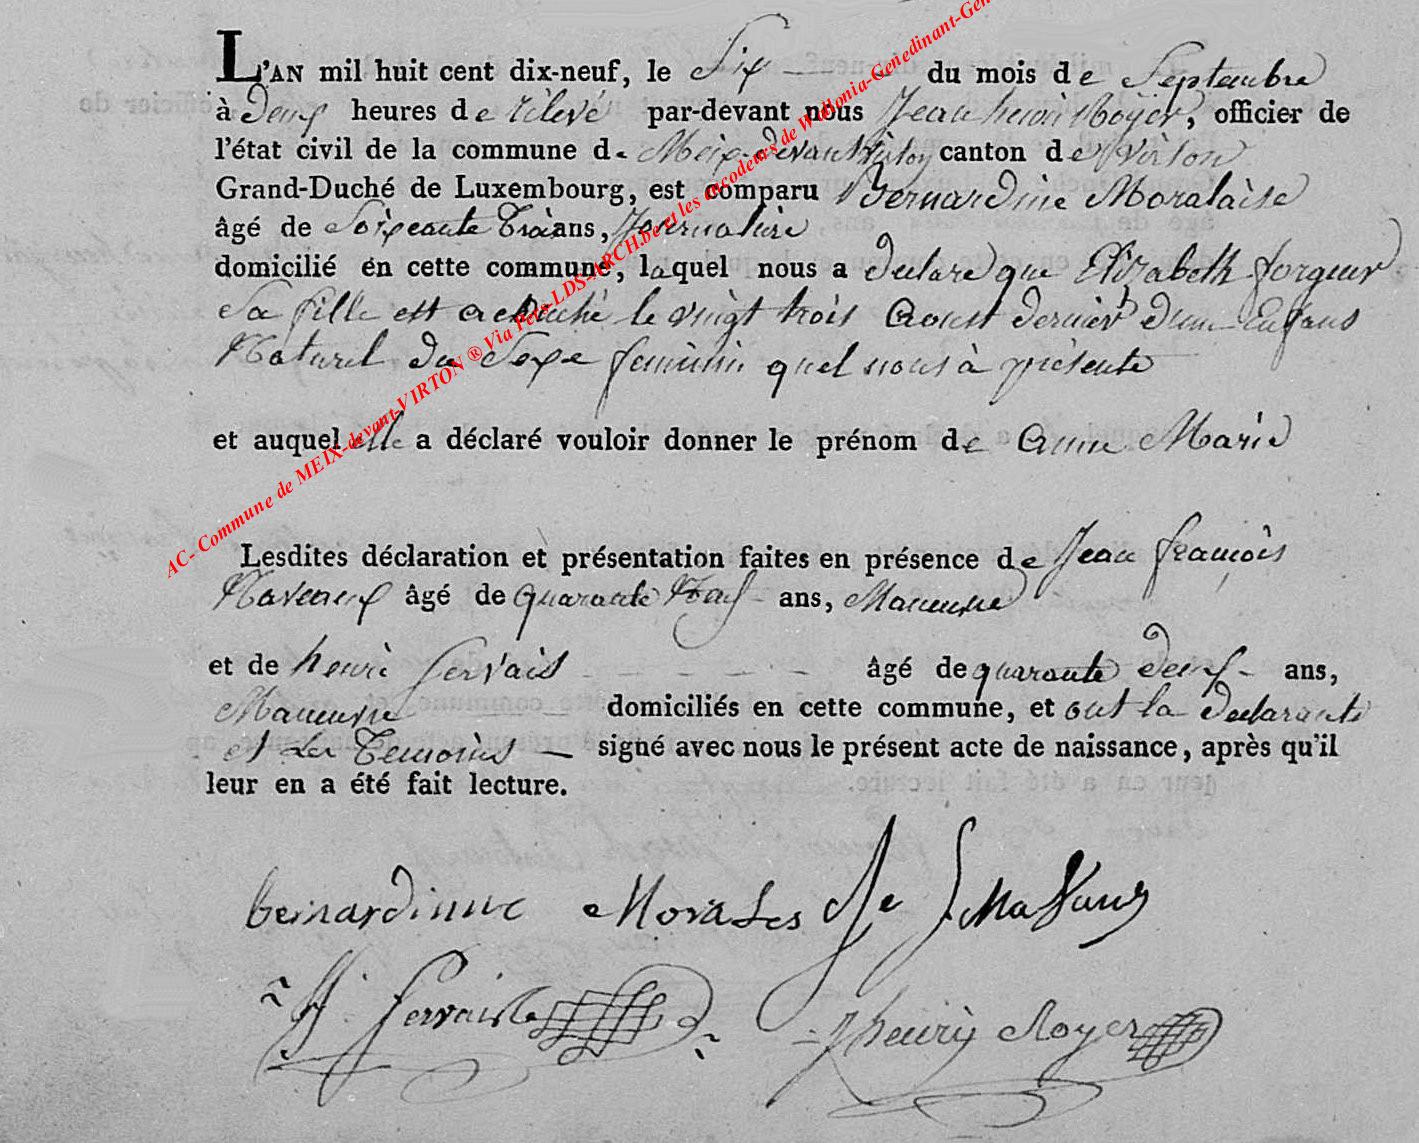 L'AN mil huit cent dix-neuf, le Six du mois de Septembre
à Deux heures de rélevé par-devant nous Jean henri Royer, officier de
l'état civil de la commune de Meix-devant Virton canton de Virton
Grand-Duché de Luxembourg, est comparu Bernardine Moralaise
âgé de Soixeante Trois ans, Journalière
domicilié en cette commune, laquel nous a declaré que Elizabeth forgeur
Sa fille est acouché le vingt trois Aoust dernier d'une Enfans
Naturel du Sexe feminin quel nous à présenté
et auquel elle a déclaré vouloir donner le prénom de Anne Marie
Lesdites déclaration et présentation faites en présence de Jean françois
âgé de quarante Neuf ans, Maneuvre
et de henri Gervais âgé de quarante Deux ans,
Maneuvre domiciliés en cette commune, et ont la declarante
et Les Temoins signé avec nous le présent acte de naissance, après qu'il
leur en a été fait lecture.
bernardinne Morales
H. Gervais
Jhenri Royer
AC- Commune de MEIX-devant-VIRTON ® Via Pele-LDS-ARCH.be et les encodeurs de Wallonia-Genedinant-Gen